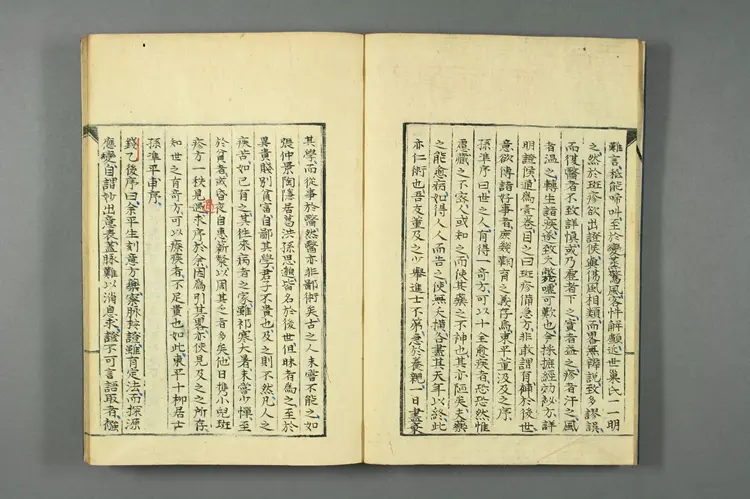 難言惟能啼叫至於變蒸驚風客忤解顱近世巢氏一一明
之然於斑疹欲出證候與傷風相類而略無辨說致多謬誤
而復醫者不致詳慎或乃虛者下之實者益之疹者汗之風
者溫之轉生諸疾遂致夭斃嗟可歎也今採摭經効祕方詳
明證候通爲一卷目之曰斑疹備急方非敢謂有補於後世
意欲傳諸好事者庶幾鞠育之義存焉東平董汲及之序
孫準序曰世之人有得一奇方可以十全愈疾者恐恐然惟
慮藏之不密人或知之而使其藥之不神也其亦陋矣夫藥
之能愈病如得人人而告之使無夭橫各盡其天年以終此
亦仁術也吾友董及之少舉進士不第急於養親一日盡棄
其學而從事於醫然醫亦非鄙術矣古之人未嘗不能之如
張仲景陶隱居葛洪孫思邈皆名於後世但昧者爲之至於
異貴賤別貧富自鄙其學君子不貴也及之則不然凡人之
疾苦如己有之其往來病者之家雖祁寒大暑未嘗少憚至
於貧者或昏夜自惠薪粲以周其乏者多矣他日攜小兒斑
疹方一秩見過求序於余因爲引其略亦使見及之之所存
知世之有奇方可以療疾者不足貴也如此東平十柳居士
孫準平甫序
錢乙後序曰余平生刻意方藥察脉按證雖有定法而探源
應變自謂妙出意表蓋脉難以消息求證不可言語取者襁